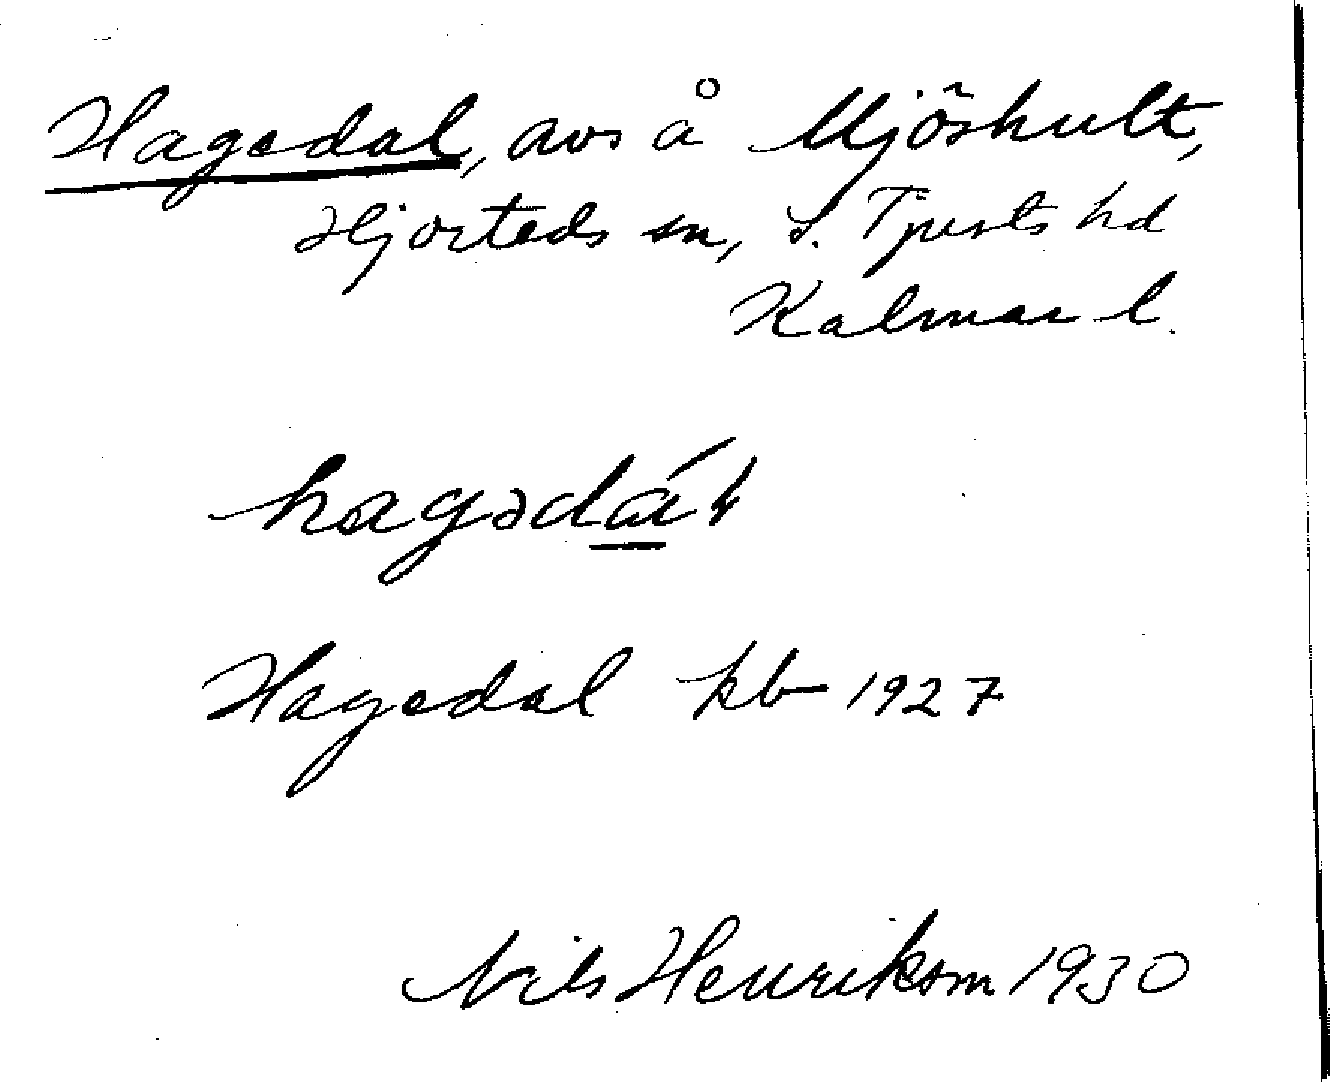 Hagedal, avs å Mjöshult,
Hjorteds sn, S. Tjusts hd
Kalmar l.
hagədál
Hagedal kb 1927
Nils Henrikson 1930